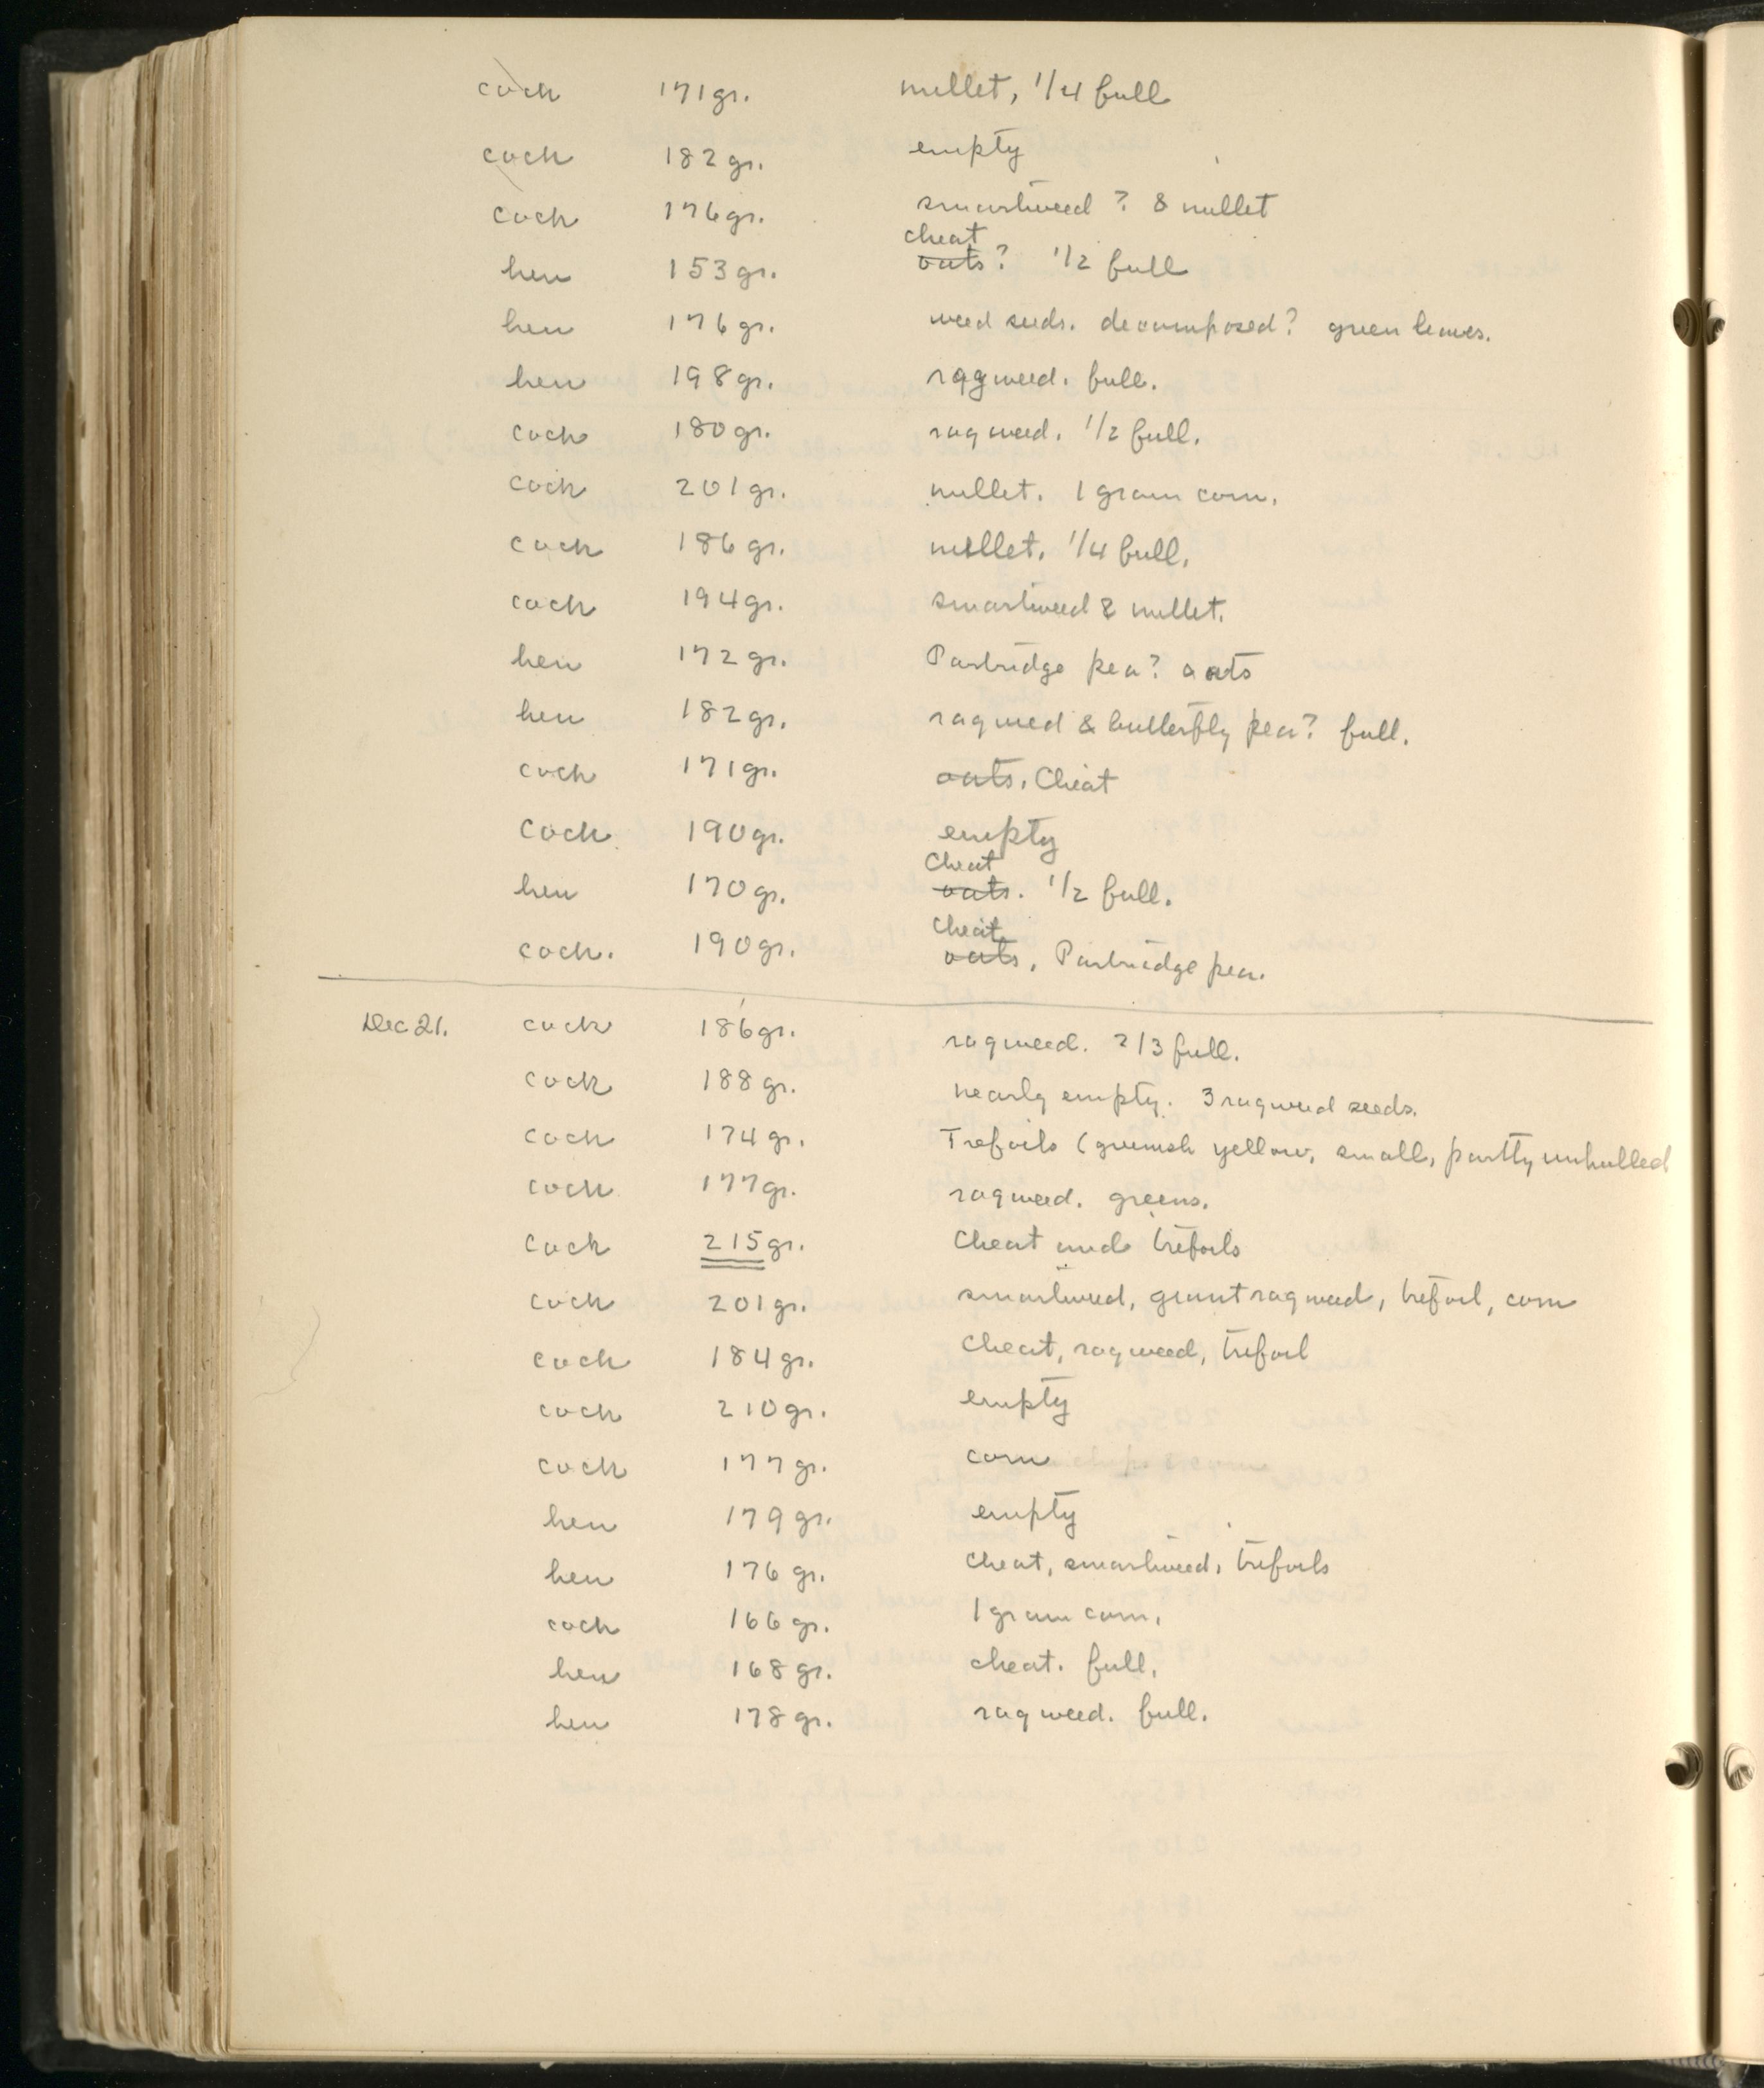 cock 171gr. millet, 1/4 full
cock 182gr. empty
cock 176gr. smartweed ? & millet
cheat
hen 153gr. oats? 1/2 full
hen 176gr. weed seeds. decomposed? green leaves.
hen 198gr. ragweed. full.
cock 180gr. ragweed. 1/2 full.
cock 201gr. millet. 1 grain corn.
cock 186gr. millet. 1/4 full.
cock 194gr. smartweed & millet.
hen 172gr. Partridge pea? oats
hen 182gr. ragweed & butterfly pea? full.
cock 171gr. oats. Cheat
cock 190gr. empty
Cheat
hen 170gr. oats. 1/2 full.
Cheat
cock. 190gr. oats, Partridge pea.
Dec 21. cock 186gr. ragweed. 2/3 full.
cock 188gr. nearly empty. 3 ragweed seeds.
cock 174gr. Trefoils (greenish yellow, small, partly unhulled
cock 177gr. ragweed. greens.
cock 215gr. Cheat and trefoils
cock 201gr. smartweed, giant ragweed, trefoil, corn
cock 184gr. Cheat, ragweed, trefoil
cock 210gr. empty
cock 177gr. corn
hen 179gr. empty
hen 176gr. Cheat, smartweed, trefoils
cock 166gr. 1 grain corn.
hen 168gr. cheat. full.
hen 178gr. ragweed. full.